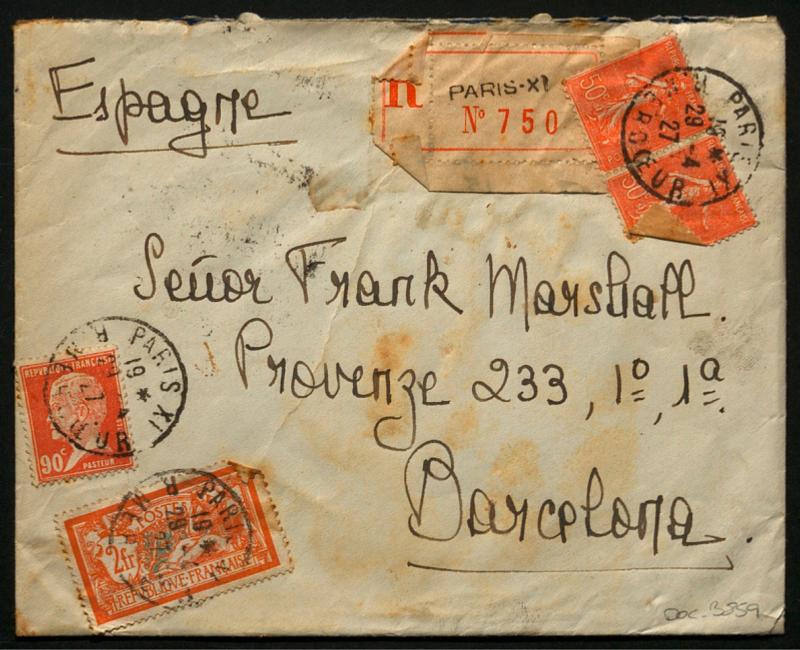 Espagne
R
PARIS-XI
Nº 750
50c
PARIS XI
19 *
29 - 4
27
50c
Señor Frank Marshall.
Provenze 233, 1º, 1ª
Barcelona.
REPUBLIQUE FRANÇAISE
90c
PASTEUR
PARIS XI
19 *
POSTES
2fr
REPUBLIQUE FRANÇAISE
PARIS
19 *
29
DOC. 3859